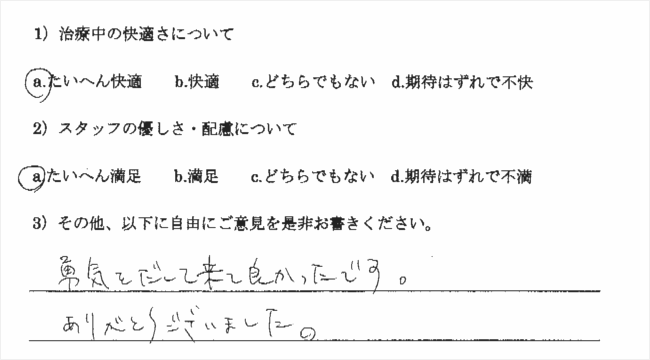 1）治療中の快適さについて
a.たいへん快適　b.快適　c.どちらでもない　d.期待はずれで不快
2）スタッフの優しさ・配慮について
a.たいへん満足　b.満足　c.どちらでもない　d.期待はずれで不満
3）その他、以下に自由にご意見を是非お書きください。
勇気をだして来て良かったです。
ありがとうございました。